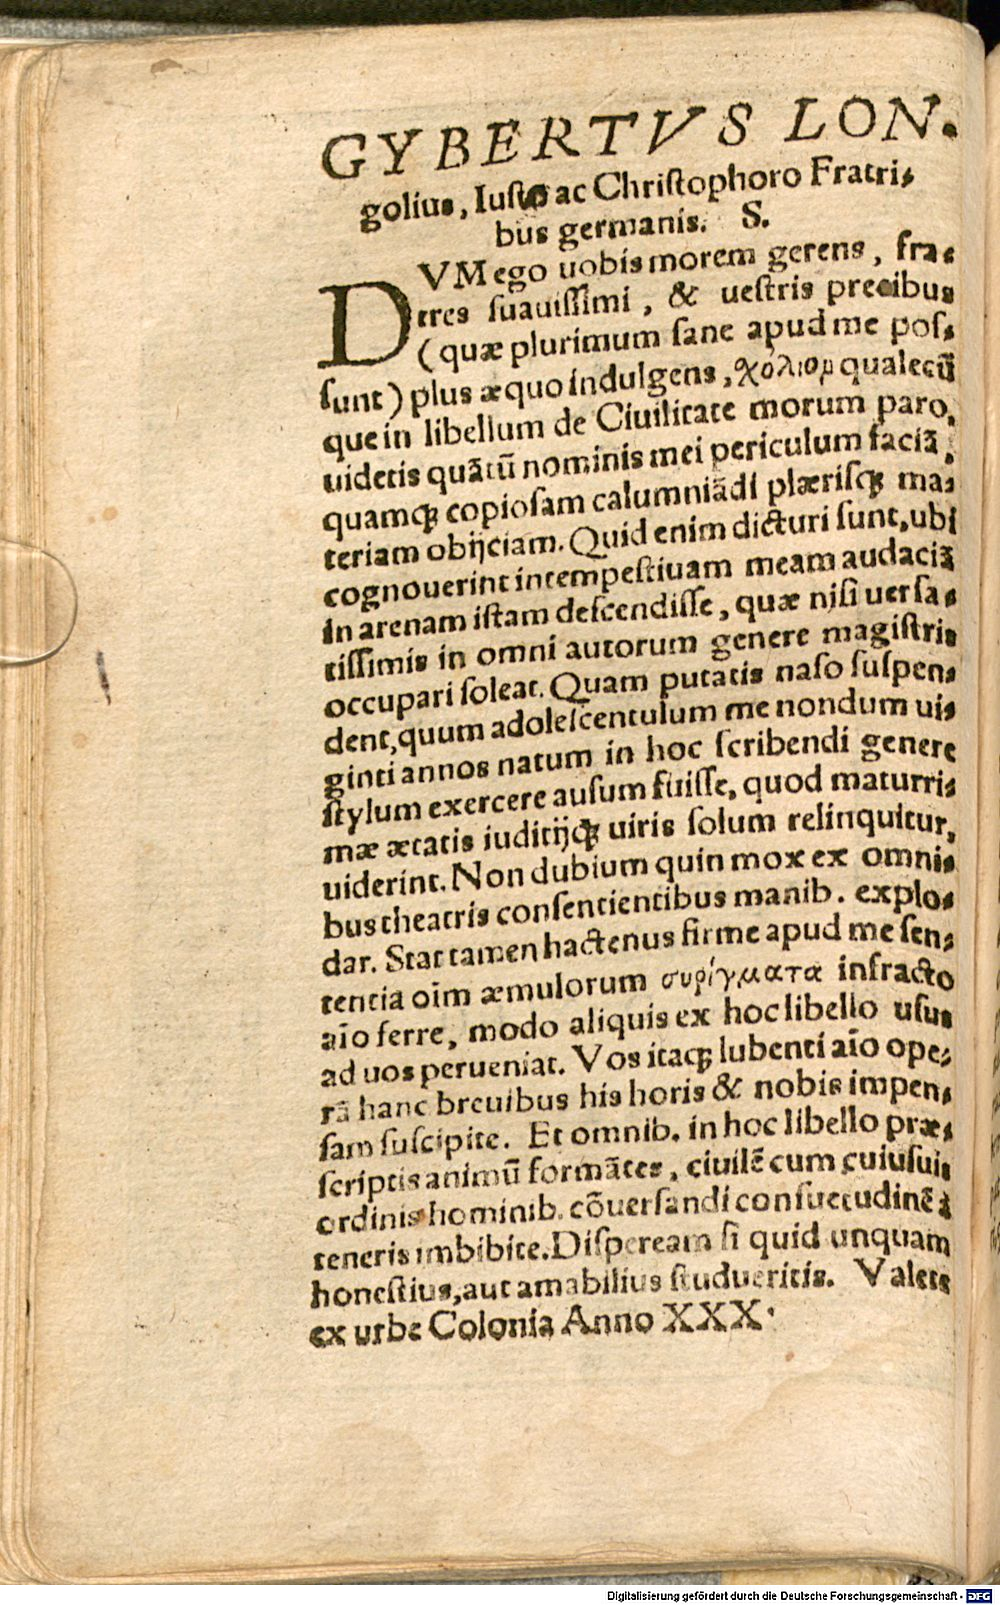 GYBERTVS LON.
golius, Iusto ac Christophoro Fratri-
bus germanis. S.
DVM ego uobis morem gerens, fra-
tres suauissimi, & uestris precibus
(quæ plurimum sane apud me pos-
sunt) plus æquo indulgens, σχόλιομ qualecũ
que in libellum de Ciuilitate morum paro,
uidetis quãtũ nominis mei periculum faciã,
quamqꝫ copiosam calumniãdi plærisqꝫ ma-
teriam obijciam. Quid enim dicturi sunt, ubi
cognouerint intempestiuam meam audaciã
in arenam istam descendisse, quæ nisi uersa-
tissimis in omni autorum genere magistris
occupari soleat. Quam putatis naso suspen-
dent, quum adolescentulum me nondum ui-
ginti annos natum in hoc scribendi genere
stylum exercere ausum fuisse, quod maturri-
mæ ætatis iuditijqꝫ uiris solum relinquitur,
uiderint. Non dubium quin mox ex omni-
bus theatris consentientibus manib. explo-
dar. Stat tamen hactenus firme apud me sen-
tentia oĩm æmulorum συρίγματα infracto
aĩo ferre, modo aliquis ex hoc libello usus
ad uos perueniat. Vos itaqꝫ lubenti aĩo ope-
rã hanc breuibus his horis & nobis impen-
sam suscipite. Et omnib. in hoc libello præ-
scriptis animũ formãtes, ciuilẽ cum cuiusuis
ordinis hominib. cõuersandi consuetudinẽ à
teneris imbibite. Dispeream si quid unquam
honestius, aut amabilius studueritis. Valete
ex urbe Colonia Anno XXX.
Digitalisierung gefördert durch die Deutsche Forschungsgemeinschaft - DFG